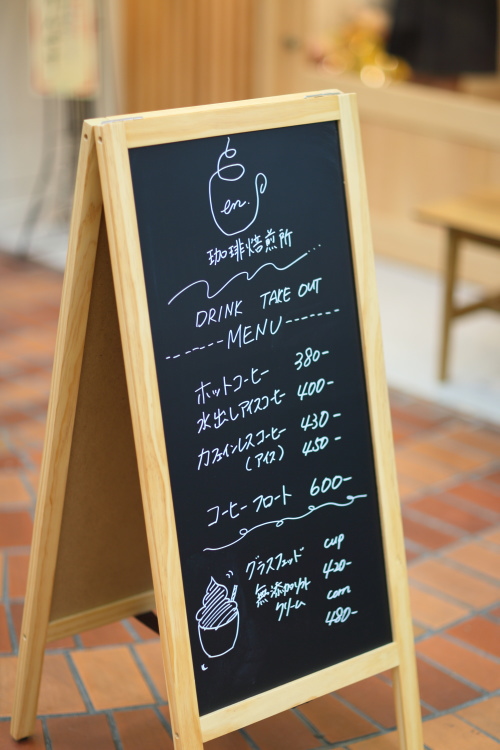 en.
珈琲焙煎所
DRINK TAKE OUT
MENU
ホットコーヒー 380-
水出しアイスコーヒー 400-
カフェインレスコーヒー 430-
(アイス) 450-
コーヒーフロート 600-
グラスフェッド cup
無添加ソフト 420-
クリーム corn
480-